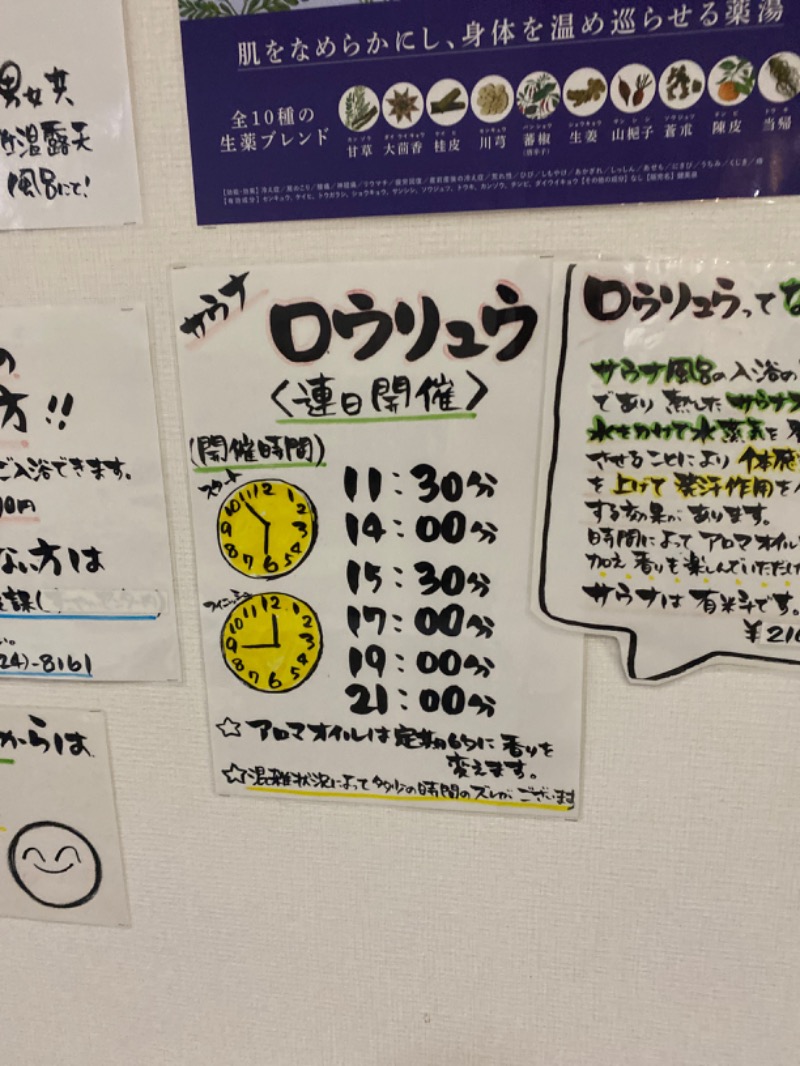 肌をなめらかにし、身体を温め巡らせる薬湯
全10種の
生薬ブレンド
カンゾウ ダイウイキョウ ケイヒ センキュウ バンショウ ショウキョウ サンシシ ソウジュツ チンピ トウキ
甘草 大茴香 桂皮 川芎 蕃椒 生姜 山梔子 蒼朮 陳皮 当帰
(唐辛子)
男女共
低温露天
風呂にて!
サウナ
ロウリュウ
〈連日開催〉
(開催時間)
スタート
11:30分
14:00分
15:30分
フィニッシュ
17:00分
19:00分
21:00分
☆アロマオイルは定期的に香りを
変えます。
☆混雑状況によって多少の時間のズレがございます
の
方!!
ご入浴できます。
00円
ない方は
24)-8161
からは
ロウリュウってな
サウナ風呂の入浴の
であり熱したサウナス
水をかけて水蒸気を発
させることにより体感
を上げて発汗作用を
する効果があります。
時間によってアロマオイル
加え香りを楽しんでいただけ
サウナは有料です。
¥210